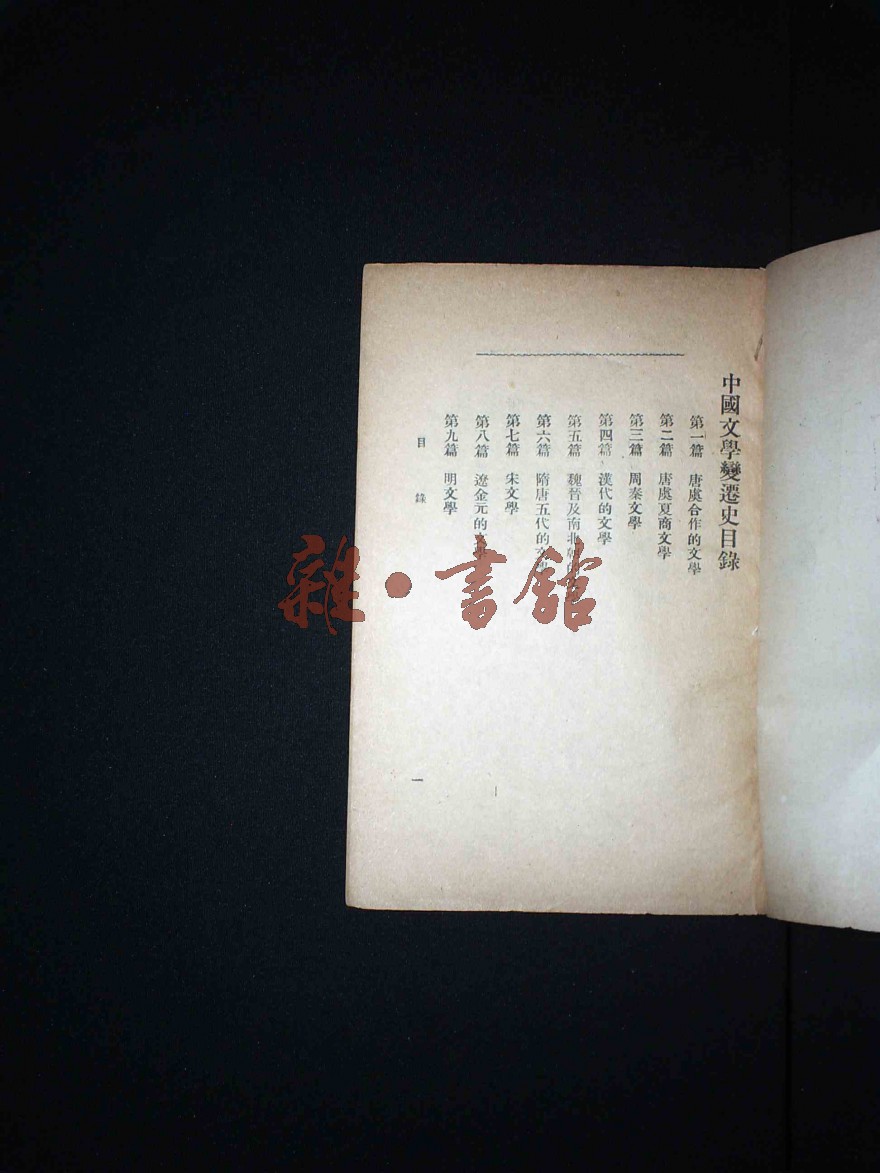 中國文學變遷史目錄
第一篇 唐虞合作的文學
第二篇 唐虞夏商文學
第三篇 周秦文學
第四篇 漢代的文學
第五篇 魏晉及南北朝的
第六篇 隋唐五代的文學
第七篇 宋文學
第八篇 遼金元的文學
第九篇 明文學
目錄
一
雜·書館